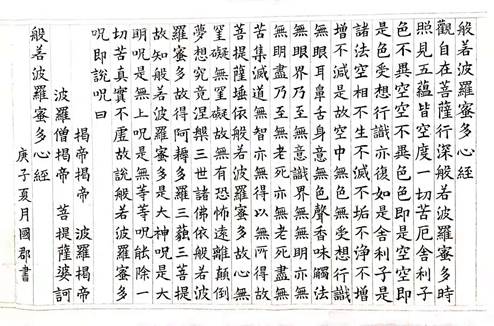 般若波羅蜜多心經
觀自在菩薩行深般若波羅蜜多時
照見五蘊皆空度一切苦厄舍利子
色不異空空不異色色即是空空即
是色受想行識亦復如是舍利子是
諸法空相不生不滅不垢不淨不增
增不減是故空中無色無受想行識
無眼耳鼻舌身意無色聲香味觸法
無眼界乃至無意識界無無明亦無
無明盡乃至無老死亦無老死盡無
苦集滅道無智亦無得以無所得故
菩提薩埵依般若波羅蜜多故心無
罣礙無罣礙故無有恐怖遠離顛倒
夢想究竟涅槃三世諸佛依般若波
羅蜜多故得阿耨多羅三藐三菩提
故知般若波羅蜜多是大神呪是大
明呪是無上呪是無等等呪能除一
切苦真實不虛故說般若波羅蜜多
呪即說呪曰
揭帝揭帝 波羅揭帝
波羅僧揭帝 菩提薩婆訶
般若波羅蜜多心經
庚子夏月國郡書